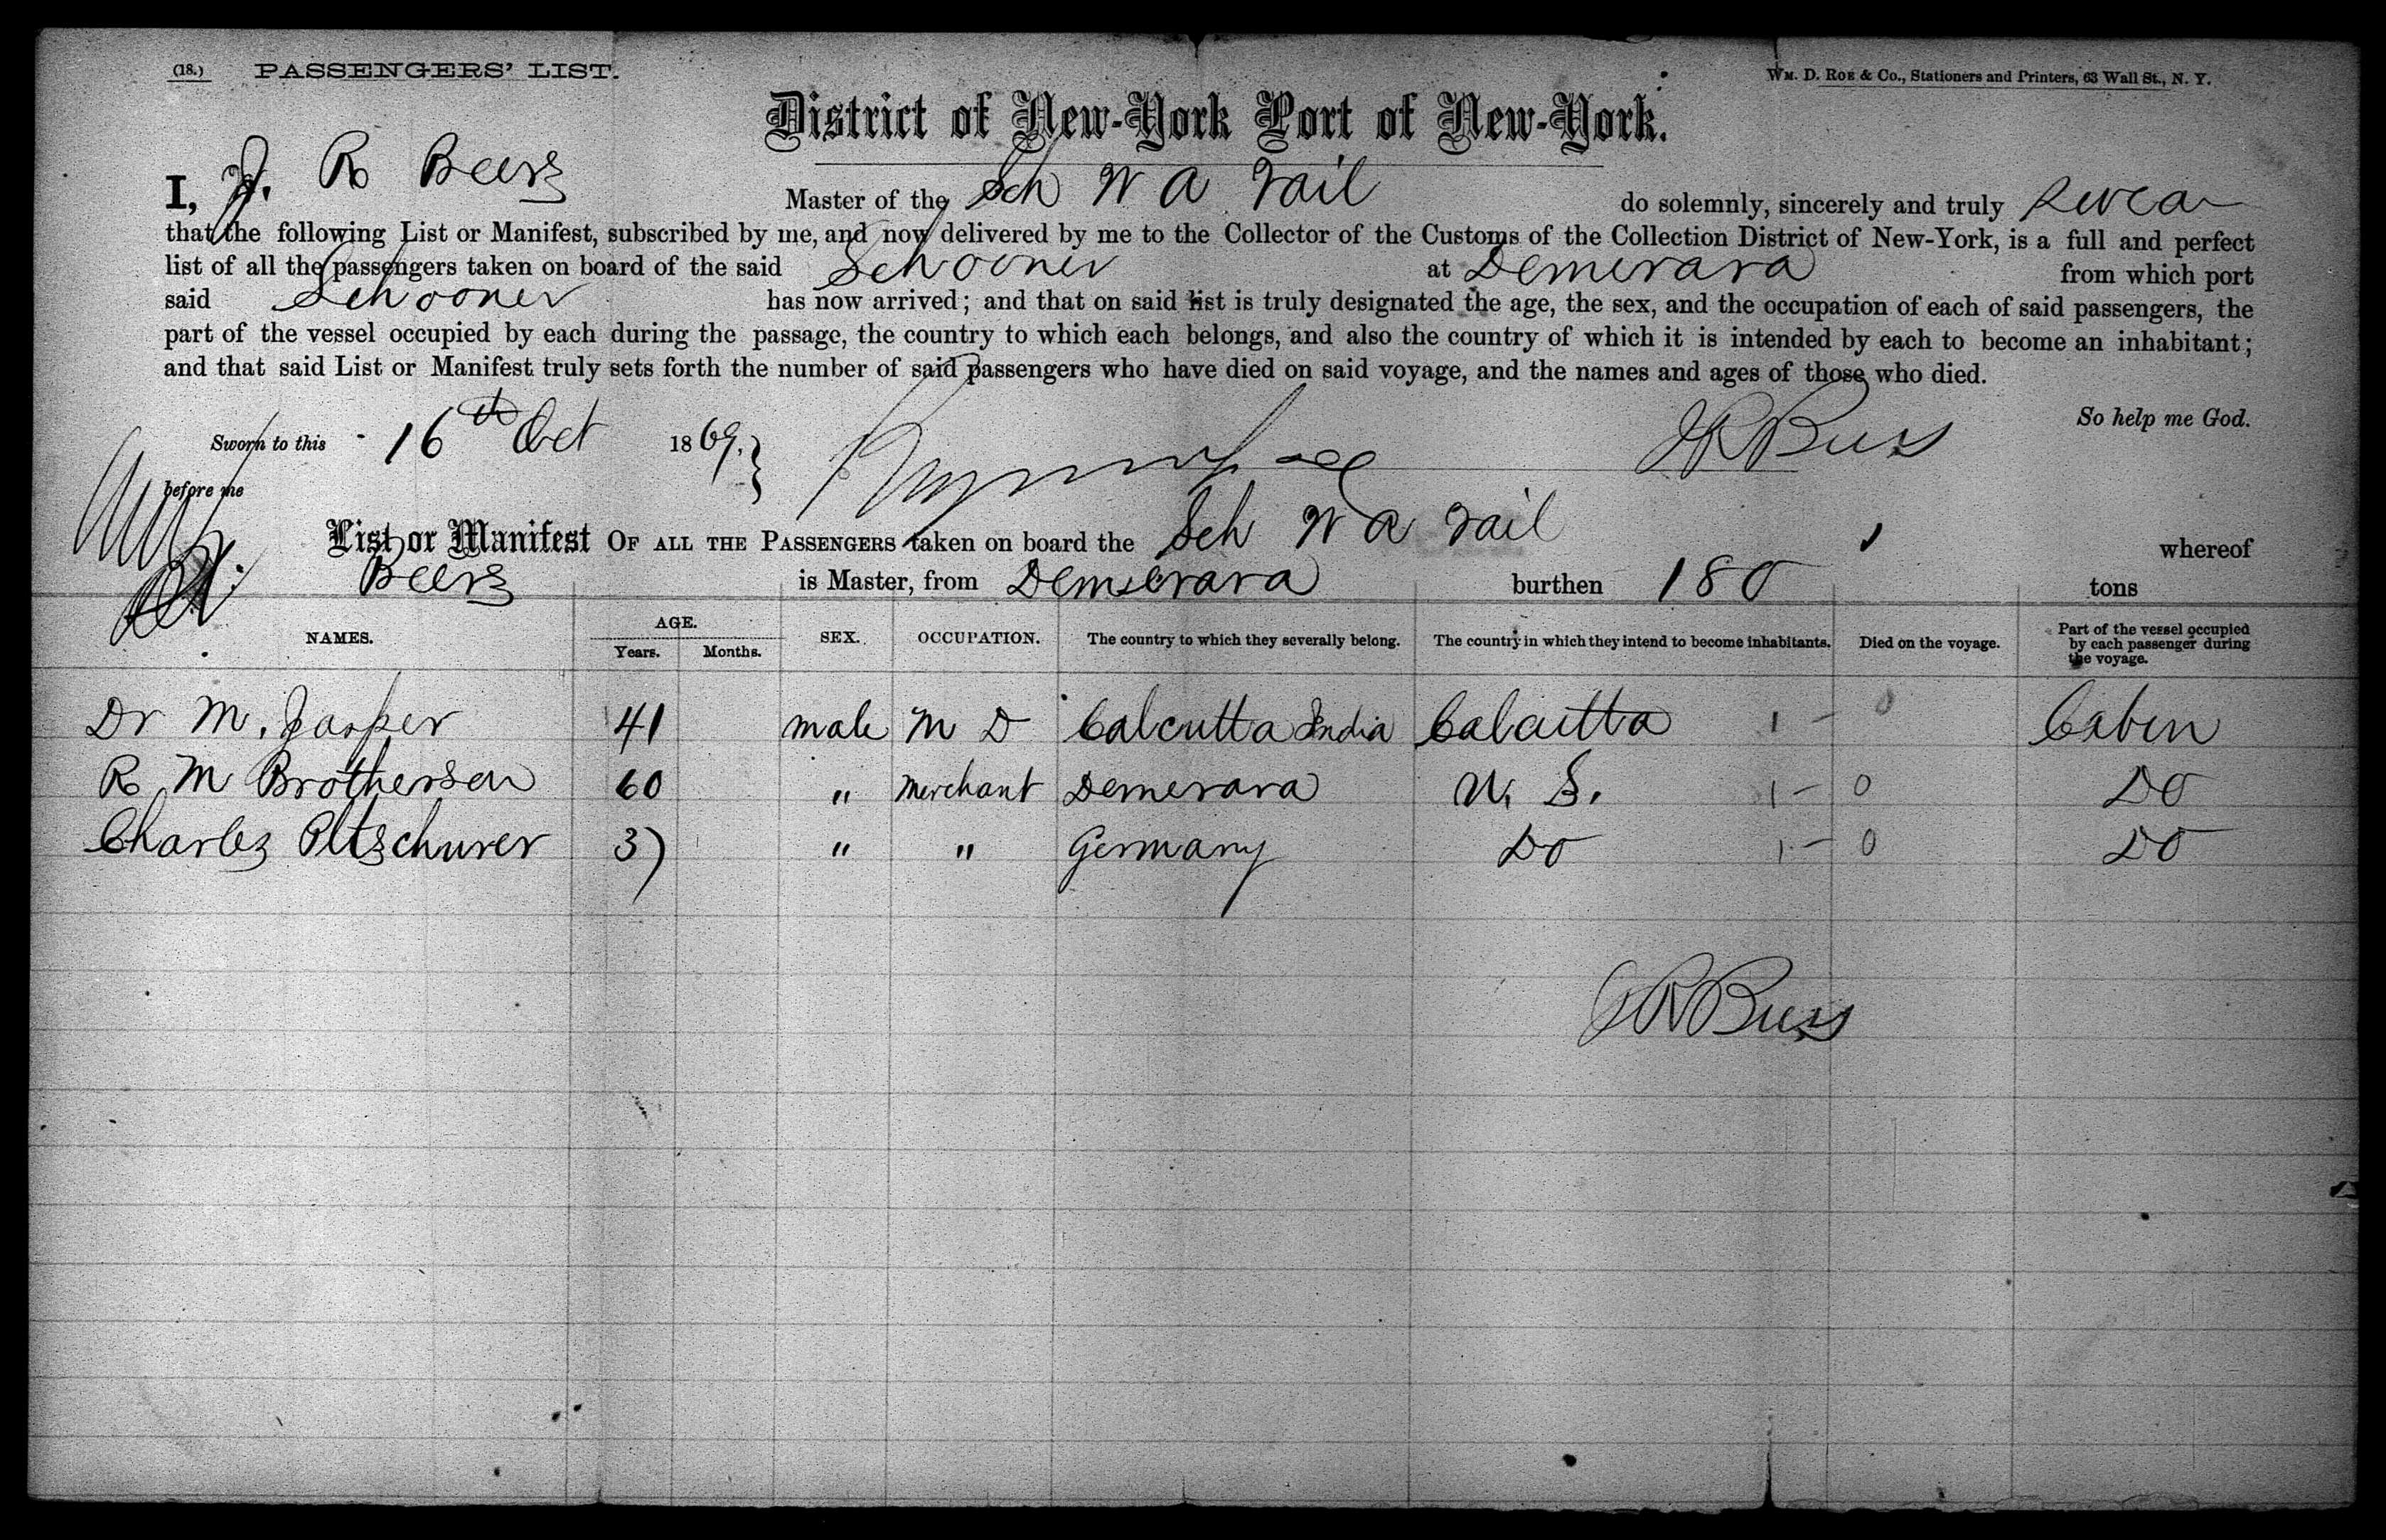 (18.) PASSENGERS' LIST.
WM. D. ROE & CO., Stationers and Printers, 63 Wall St., N. Y.
District of New-York Port of New-York.
I, J. R Beers Master of the Sch W A Vail do solemnly, sincerely and truly swear
that the following List or Manifest, subscribed by me, and now delivered by me to the Collector of the Customs of the Collection District of New-York, is a full and perfect
list of all the passengers taken on board of the said Schooner at Demerara from which port
said Schooner has now arrived; and that on said list is truly designated the age, the sex, and the occupation of each of said passengers, the
part of the vessel occupied by each during the passage, the country to which each belongs, and also the country of which it is intended by each to become an inhabitant;
and that said List or Manifest truly sets forth the number of said passengers who have died on said voyage, and the names and ages of those who died.
So help me God.
Sworn to this 16th Oct 1869. } J R Beers
before me
List or Manifest OF ALL THE PASSENGERS taken on board the Sch W A Vail whereof
Beers is Master, from Demerara burthen 180 tons
NAMES. AGE. Years. Months. SEX. OCCUPATION. The country to which they severally belong. The country in which they intend to become inhabitants. Died on the voyage. Part of the vessel occupied by each passenger during the voyage.
Dr M. Jasper 41 male M D Calcutta India Calcutta 1 - 0 Cabin
R M Brotherson 60 " Merchant Demerara U. S. 1 - 0 Do
Charles 37 " " Germany Do 1 - 0 Do
J R Beers